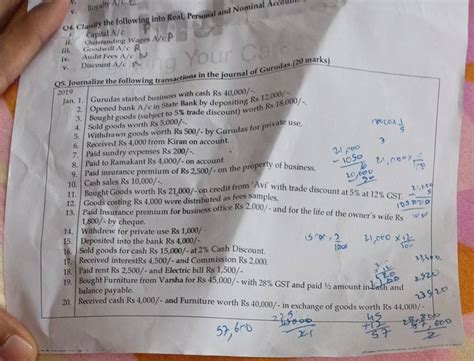 v. Royalty A/c
Q4. Classify the following into Real, Personal and Nominal Account
i. Capital A/c P
ii. Outstanding Wages A/c P
iii. Goodwill A/c R
iv. Audit Fees A/c
v. Discount A/c
Q5. Journalize the following transactions in the journal of Gurudas. (20 marks)
2019
Jan. 1. Gurudas started business with cash Rs 40,000/-.
2. Opened bank A/c in State Bank by depositing Rs 12,000/-.
3. Bought goods (subject to 5% trade discount) worth Rs.18,000/-.
4. Sold goods worth Rs 5,000/-.
5. Withdrawn goods worth Rs 500/- by Gurudas for private use.
6. Received Rs 4,000 from Kiran on account.
7. Paid sundry expenses Rs 200/-.
8. Paid to Ramakant Rs 4,000/- on account
9. Paid insurance premium of Rs 2,500/- on the property of business.
10. Cash sales Rs 10,000/-.
11. Bought Goods worth Rs 21,000/- on credit from 'Avi' with trade discount at 5% at 12% GST.
12. Goods costing Rs 4,000 were distributed as fees samples.
13. Paid Insurance premium for business office Rs 2,000/- and for the life of the owner's wife Rs
1,800/- by cheque.
14. Withdrew for private use Rs 1,000/-
15. Deposited into the bank Rs 4,000/-
16. Sold goods for cash Rs 15,000/- at 2% Cash Discount.
17. Received interestRs 4,500/- and Commission Rs 2,000.
18. Paid rent Rs 2,500/- and Electric bill Rs 1,500/-
19. Bought Furniture from Varsha for Rs 45,000/- with 28% GST and paid ½ amount in cash and
balance payable.
20. Received cash Rs 4,000/- and Furniture worth Rs 40,000/- in exchange of goods worth Rs 44,000/-
21,000
- 1050
21,000 × 12
100
23520
57,600
45
+12
57